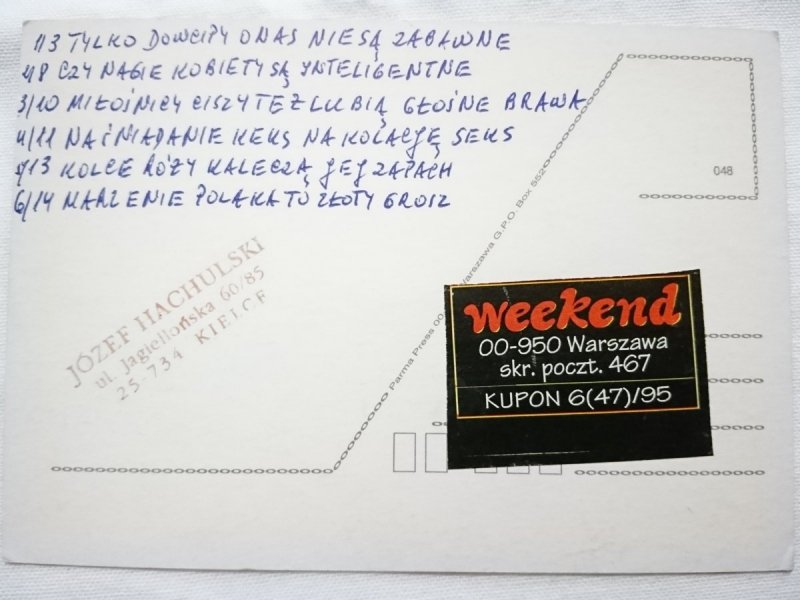 1/3 TYLKO DOWCIPY O NAS NIE SĄ ZABAWNE
2/8 CZY NAGIE KOBIETY SĄ YNTELIGENTNE
3/10 MIŁOŚNICY CISZY TEŻ LUBIĄ GŁOŚNE BRAWA
4/11 NA ŚNIADANIE KEKS NA KOLACJĘ SEKS
5/13 KOLCE RÓŻY KALECZĄ JEJ ZAPACH
6/14 MARZENIE POLAKA TO ZŁOTY GROSZ
048
JÓZEF HACHULSKI
ul. Jagiellońska 60/85
25-734 KIELCE
Parma Press 00- Warszawa G.P.O. Box 552
weekend
00-950 Warszawa
skr. poczt. 467
KUPON 6(47)/95